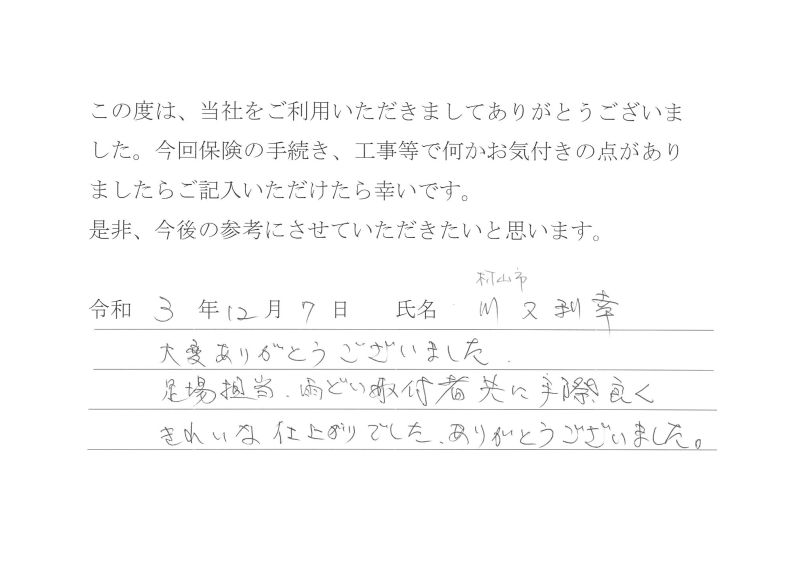 この度は、当社をご利用いただきましてありがとうございま
した。今回保険の手続き、工事等で何かお気付きの点があり
ましたらご記入いただけたら幸いです。
是非、今後の参考にさせていただきたいと思います。
村山市
令和 3 年 12 月 7 日 氏名 川又利幸
大変ありがとうございました.
足場担当、雨どい取付者共に手際良く
きれいな仕上がりでした、ありがとうございました。